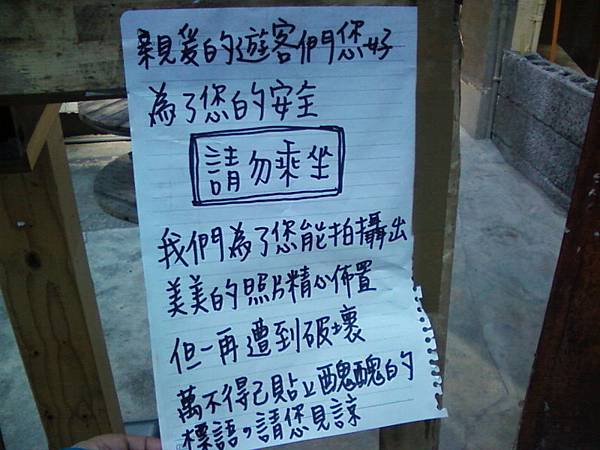 親愛的遊客們您好
為了您的安全
請勿乘坐
我們為了您能拍攝出
美美的照片精心佈置
但一再遭到破壞
萬不得已貼上醜醜的
標語，請您見諒